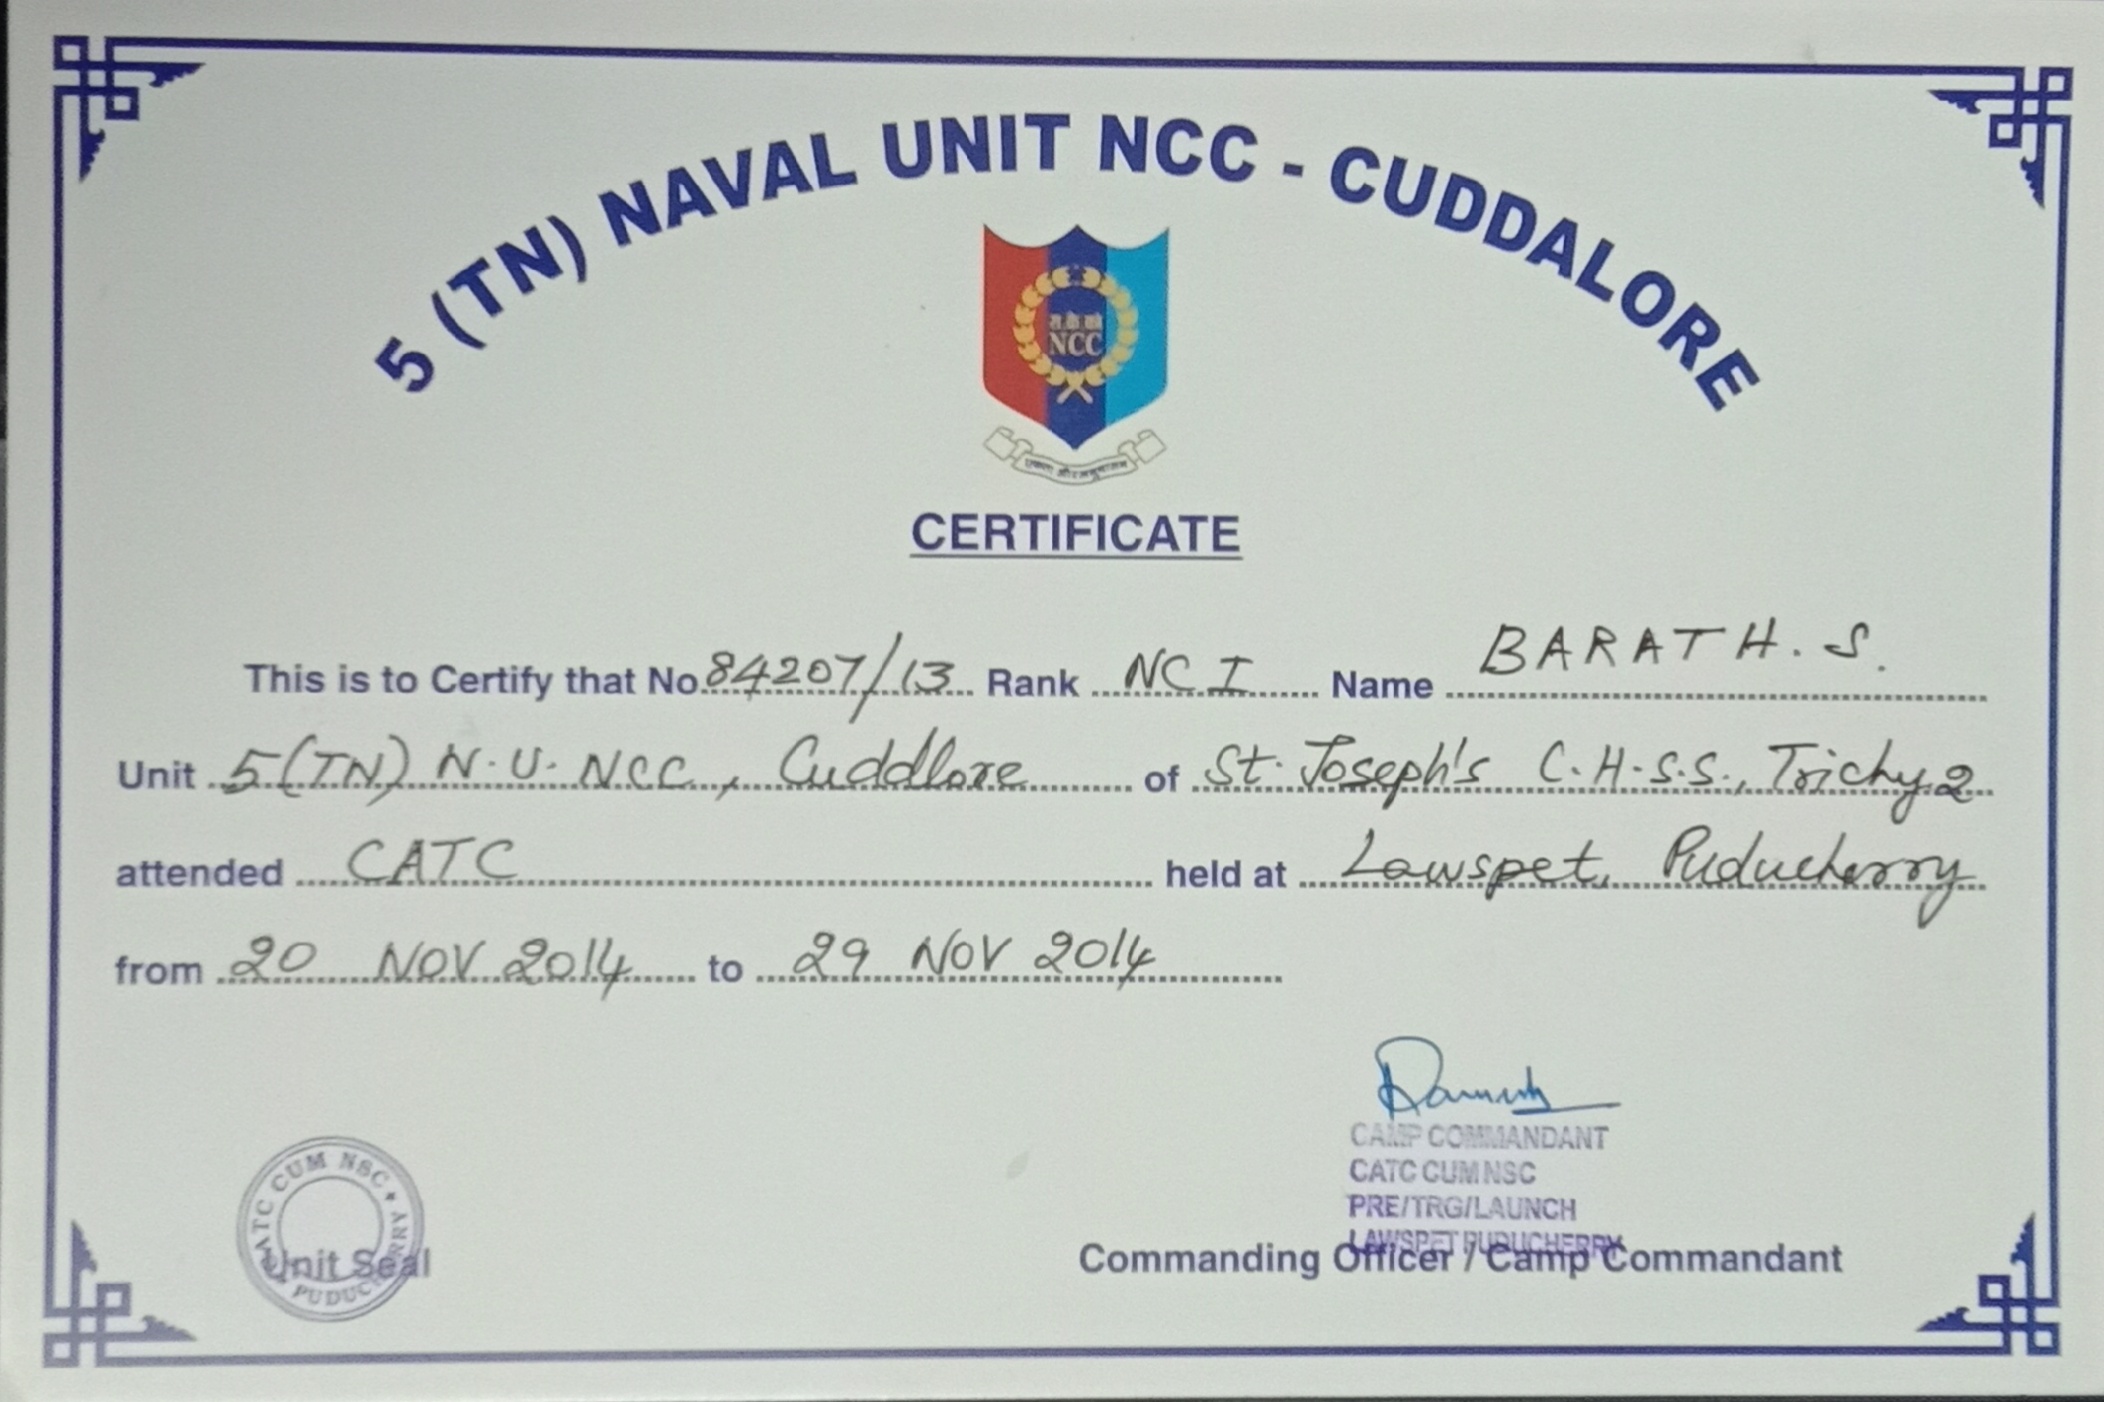 5 (TN) NAVAL UNIT NCC - CUDDALORE
NCC
एकता और अनुशासन
CERTIFICATE
This is to Certify that No. 84207/13 Rank NC I Name BARATH. S.
Unit 5(TN) N.U. NCC, Cuddlore of St. Joseph's C.H.S.S., Trichy 2
attended CATC held at Lawspet, Puducherry
from 20 NOV 2014 to 29 NOV 2014
CAMP COMMANDANT
CATC CUM NSC
PRE/TRG/LAUNCH
LAWSPET PUDUCHERRY
CATC CUM NSC
Unit Seal
Commanding Officer / Camp Commandant